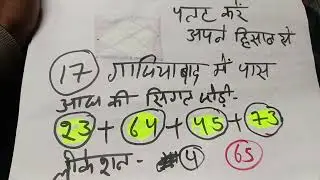 पलट करें
अपने हिसाब से
17 गाजियाबाद में पास
आज की सिंगल जोड़ी-
23 + 64 + 45 + 73
लोकेशन - 4 65